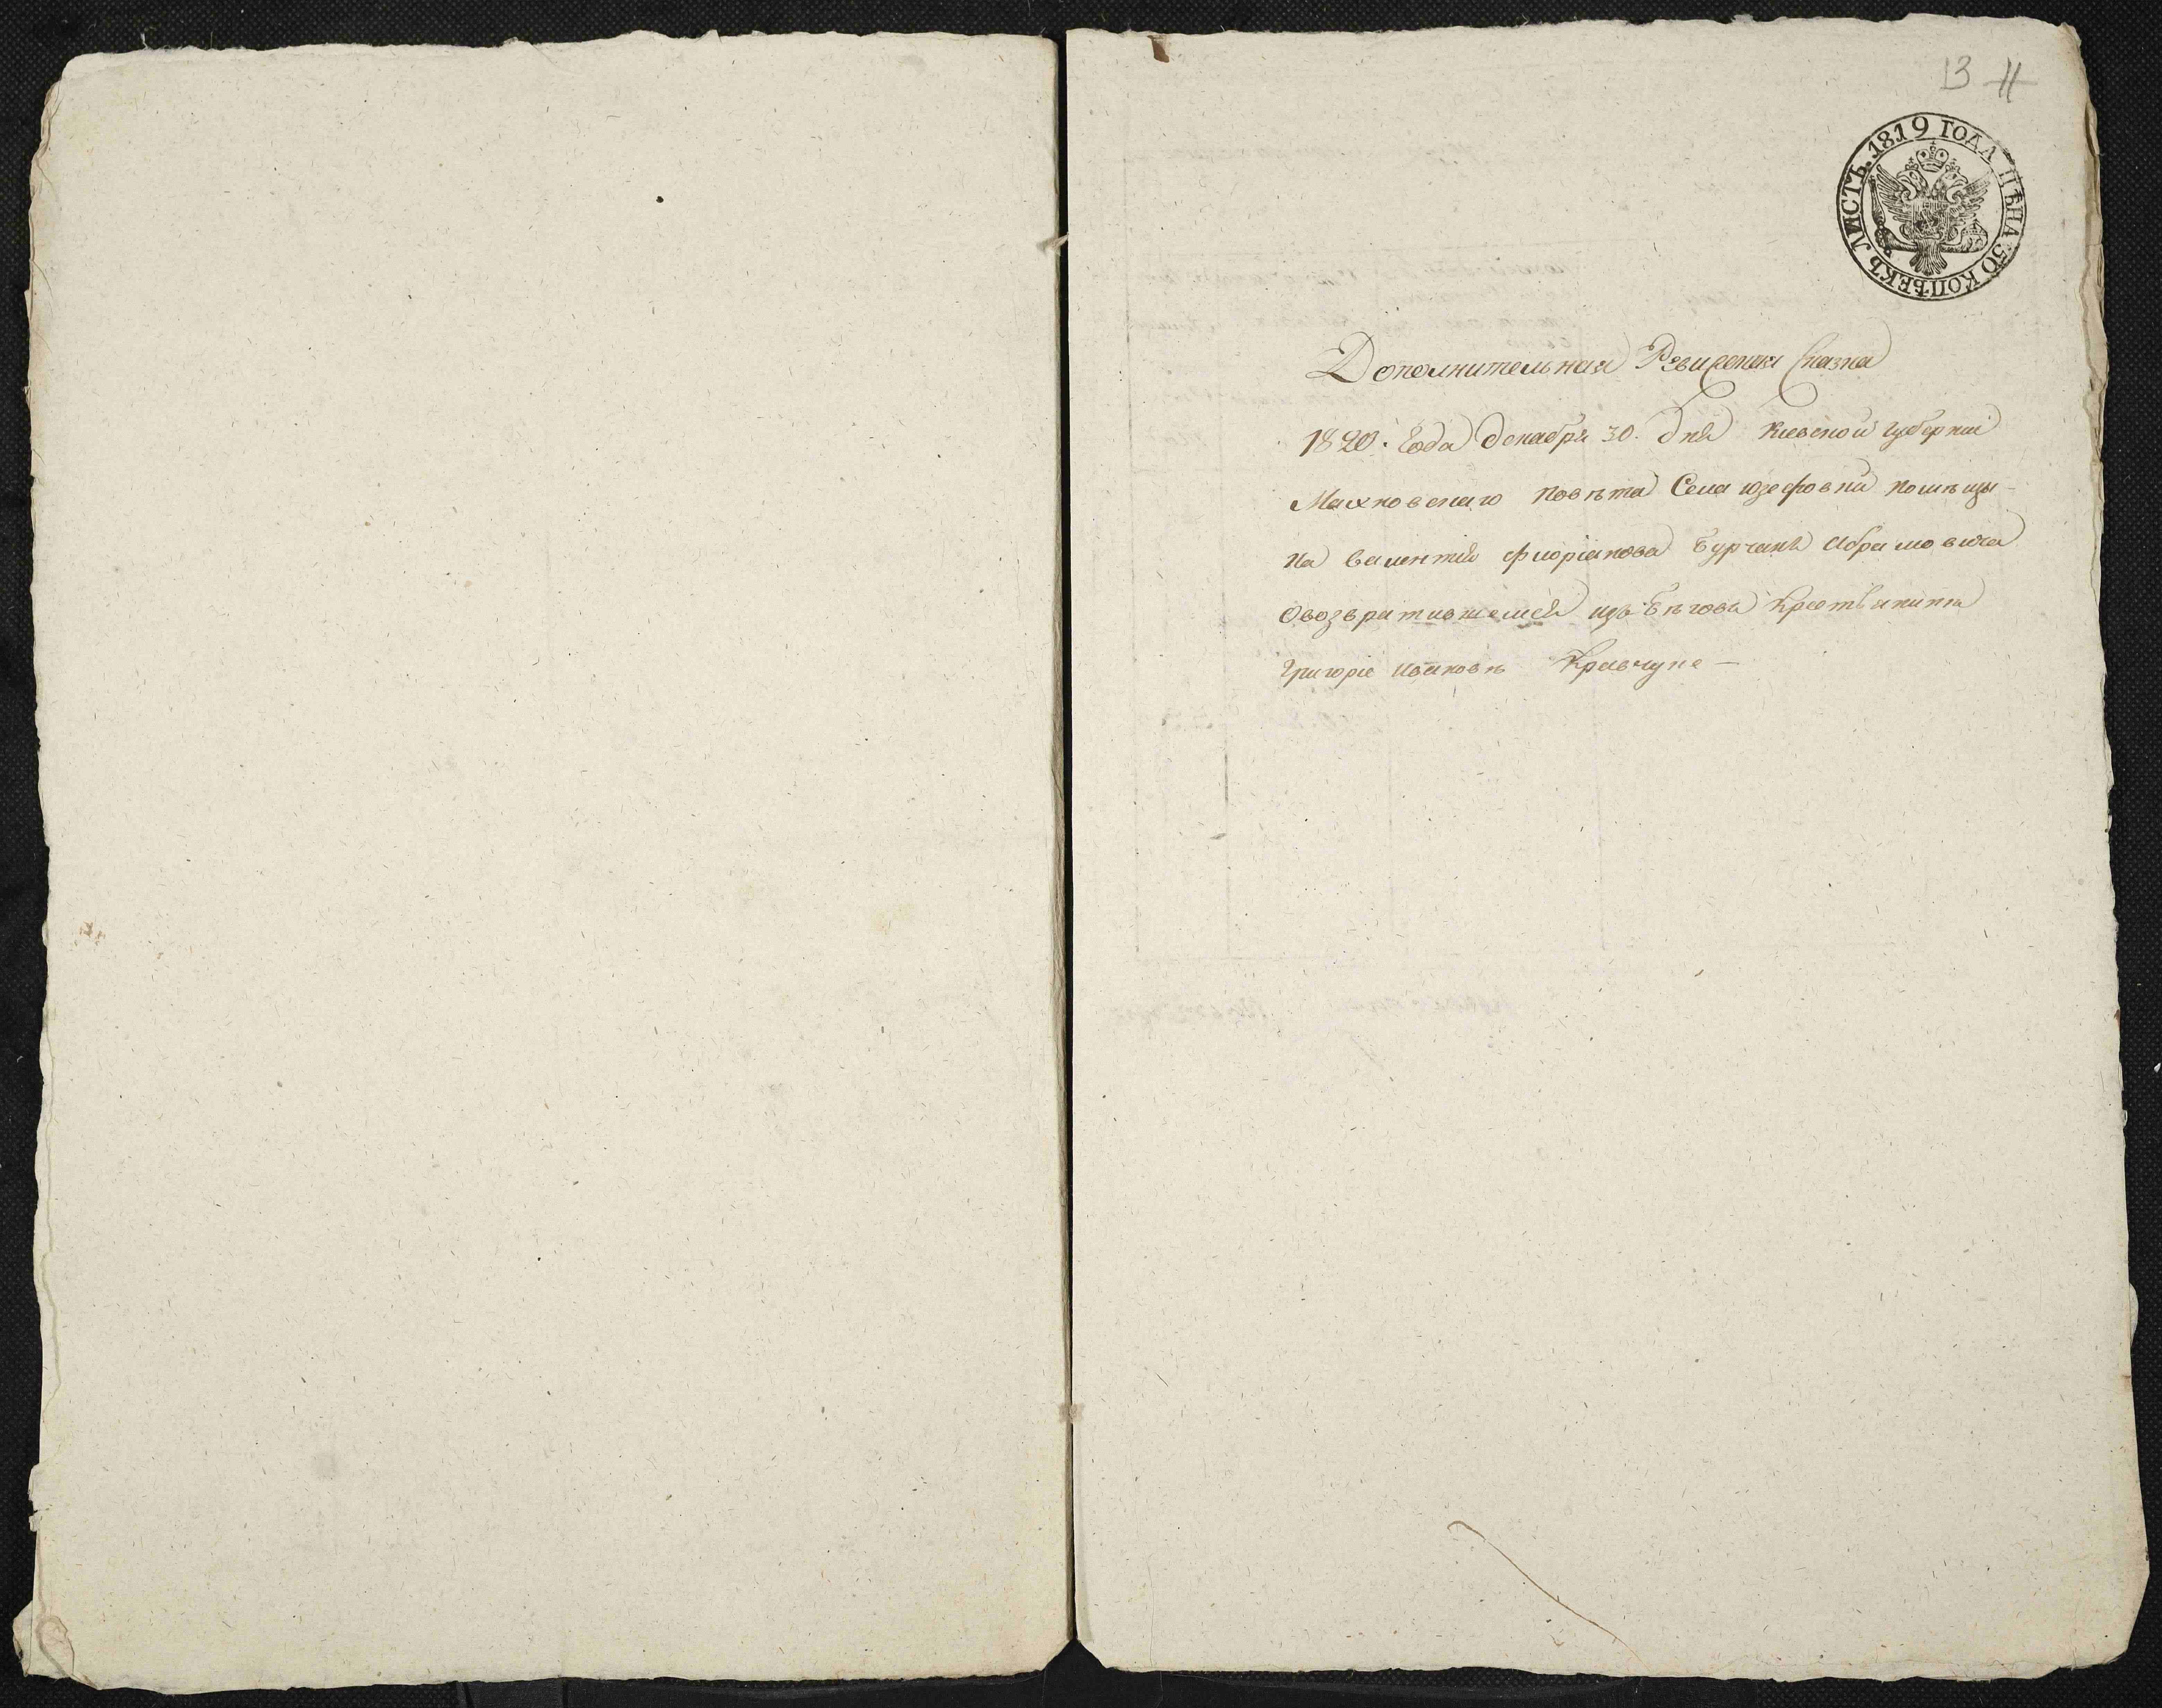 13 11
ЛИСТЪ. 1819 ГОДА ЦѢНА 50 КОПѢЕКЪ
Дополнительная Ревизская Сказка
1820. Года декабря 30. дня Киевской Губерніи
Махновскаго повѣта Села Юзефовки помѣщы-
ка Валентія Флоріянова Бурчака Абрамовича
Овозвратившемся изъ бѣговъ Крестянинѣ
Григоріе Ивановѣ Кравчуке —